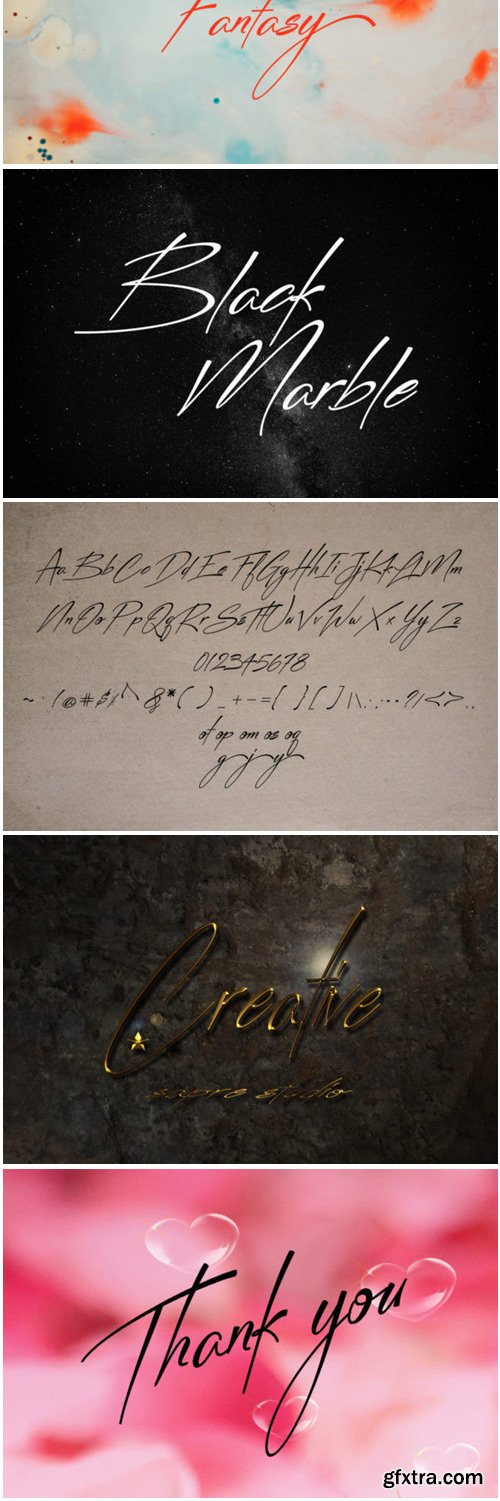 Fantasy
Black
Marble
Aa Bb Cc Dd Ee Ff Gg Hh Ii Jj Kk Ll Mm
Nn Oo Pp Qq Rr Ss Tt Uu Vv Ww Xx Yy Zz
012345678
of op om os oq
g j y
Creative
supre studio
Thank you
gfxtra.com